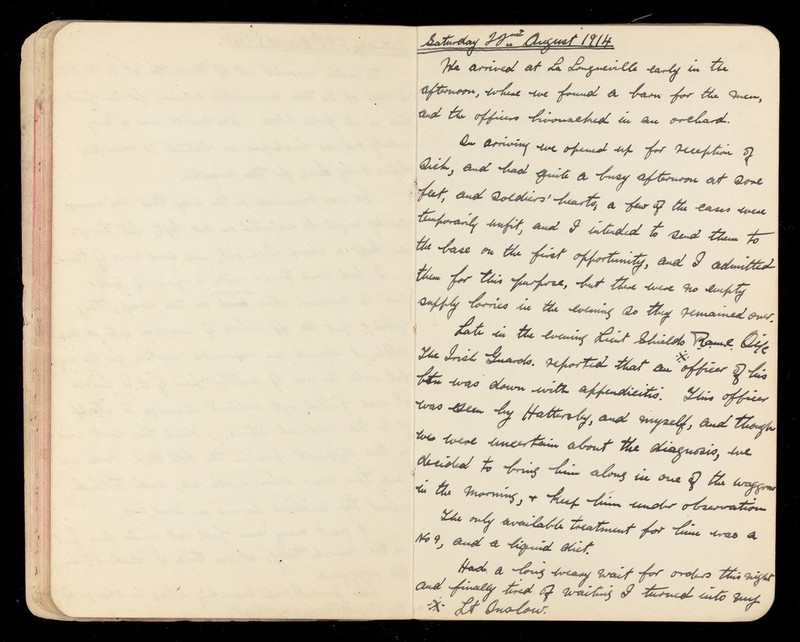 Saturday 22nd August 1914
We arrived at La Longueville early in the
afternoon, where we found a barn for the men,
and the officers bivouacked in an orchard.
On arriving we opened up for reception of
Sick, and had quite a busy afternoon at sore
feet, and soldiers' hearts, a few of the cases were
temporarily unfit, and I intended to send them to
the base on the first opportunity, and I admitted
them for this purpose, but there were no empty
supply lorries in the evening so they remained over.
Late in the evening Lieut Shields R.a.m.c.
The Irish Guards. reported that an officer of his
btn was down with appendicitis. This officer
was seen by Hattersby, and myself, and though
we were uncertain about the diagnosis, we
decided to bring him along in one of the waggons
in the morning, & keep him under observation
The only available treatment for him was a
No 9, and a liquid diet.
Had a long weary wait for orders this night
and finally tired of waiting I turned into my
※ Lt Onslow.